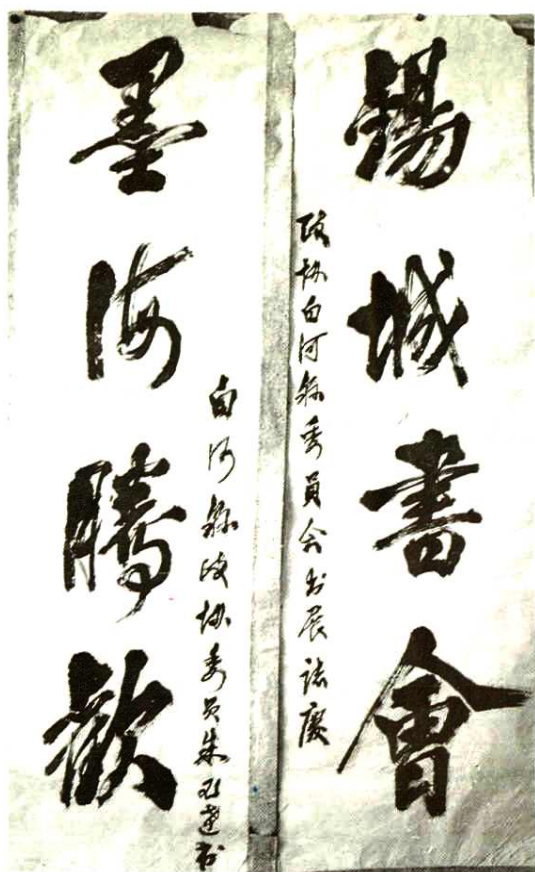 锡城書會
政协白河縣委員会书展誌慶
墨海騰歡
白河縣政协委员朱
书